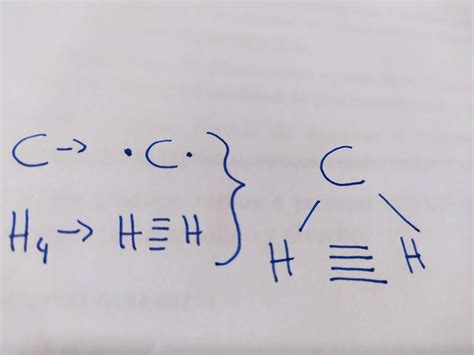 C → ·C·
H₄ → H≡H
}
C
/ \
H ≣ H